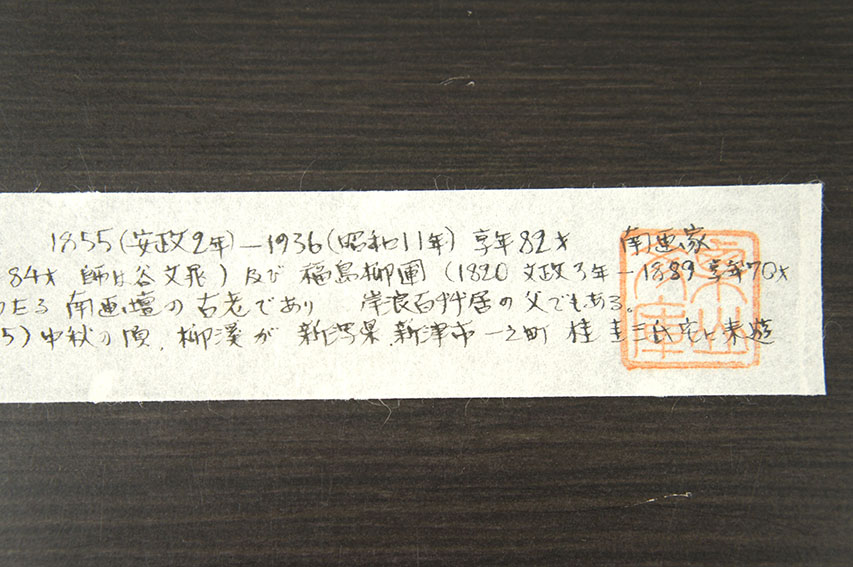 1855(安政2年)―1936(昭和11年) 享年82才 南画家
84才 師は谷文晁) 及び 福島柳圃 (1820 文政3年―1889 享年70才
わたる 南画壇の古老であり 岸浪百艸居の父でもある。
5) 中秋の頃、柳溪が 新潟県 新津市 一之町 桂 圭三氏宅に来遊
文庫